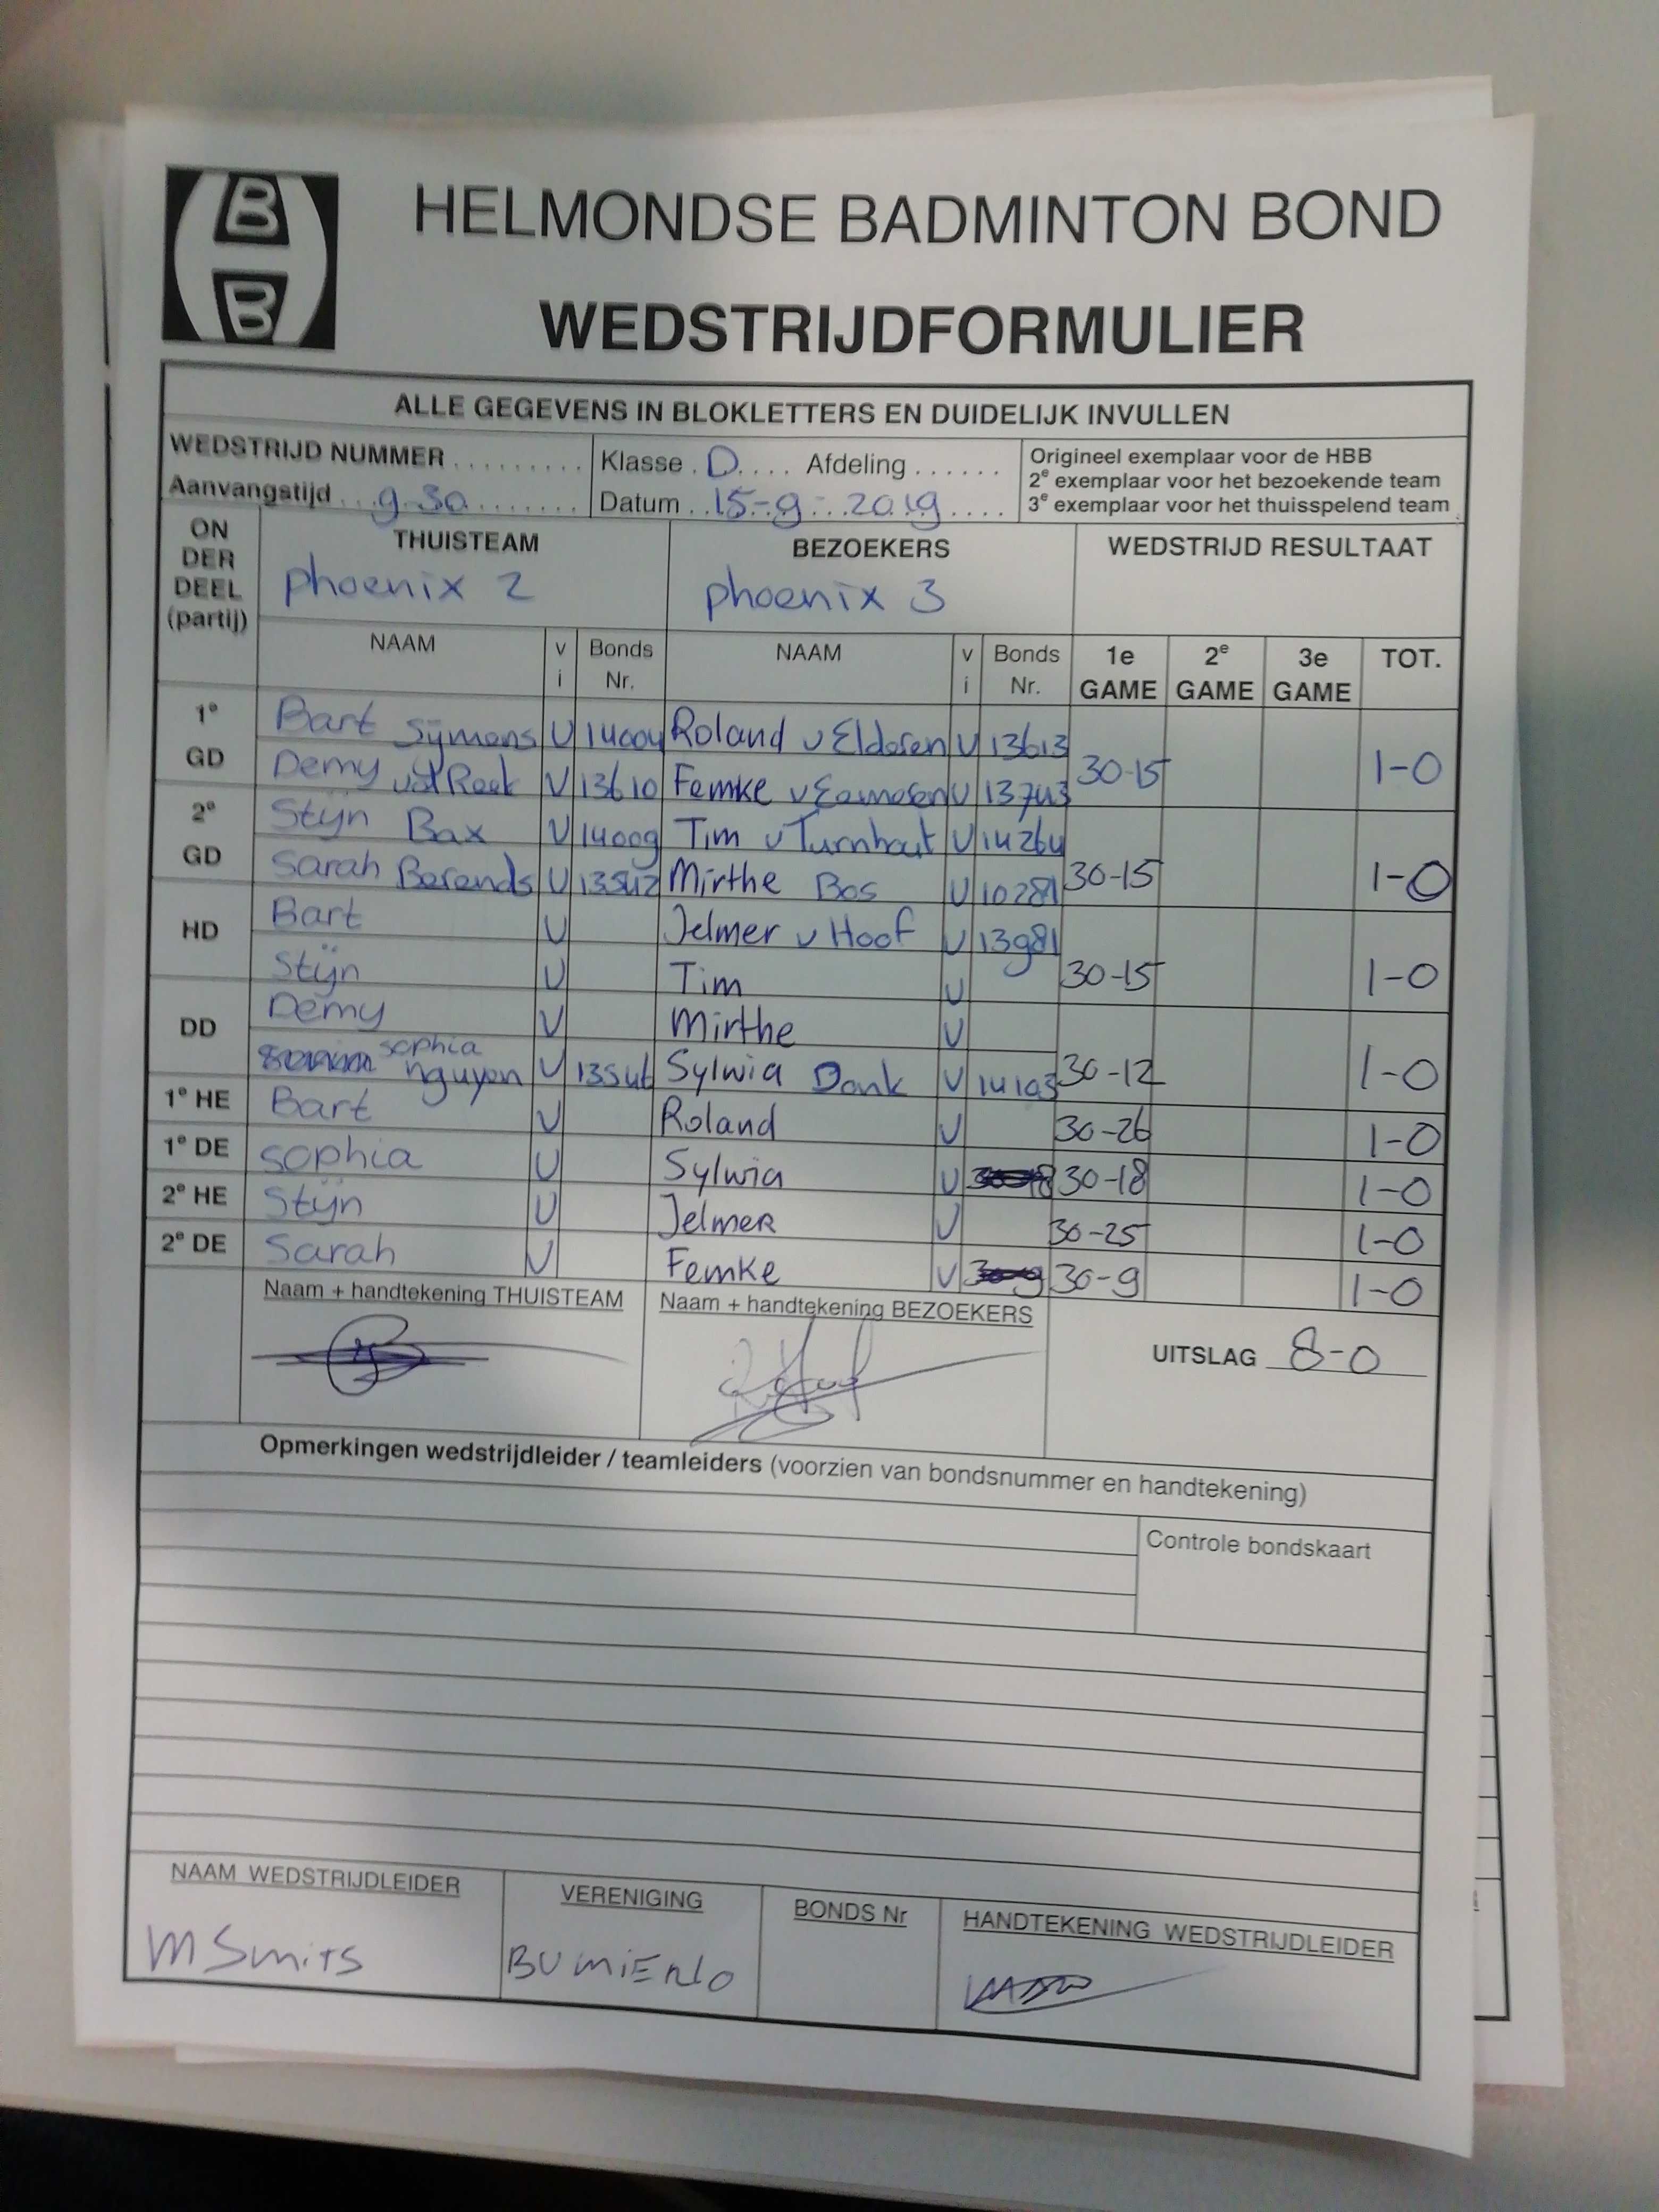 B
B
HELMONDSE BADMINTON BOND
WEDSTRIJDFORMULIER
ALLE GEGEVENS IN BLOKLETTERS EN DUIDELIJK INVULLEN
WEDSTRIJD NUMMER ......... Klasse . D .... Afdeling ...... Origineel exemplaar voor de HBB
2e exemplaar voor het bezoekende team
Aanvangstijd ... 9.30 ....... Datum .. 15-9-2019 .... 3e exemplaar voor het thuisspelend team
ON DER DEEL (partij) THUISTEAM BEZOEKERS WEDSTRIJD RESULTAAT
phoenix 2 phoenix 3
NAAM v i Bonds Nr. NAAM v i Bonds Nr. 1e GAME 2e GAME 3e GAME TOT.
1e GD Bart Sijmons V 14004 Roland v Elderen V 13613
Demy V 13610 Femke V 13743 30-15 1-0
2e GD Stijn Bax V 14009 Tim v Turnhout V 14264
Sarah Berends V 13542 Mirthe Bos V 10281 30-15 1-0
HD Bart V Jelmer v Hoof V 13981
Stijn V Tim V 30-15 1-0
DD Demy V Mirthe V
sophia nguyen V Sylwia Donk V 14103 30-12 1-0
1e HE Bart V Roland V 30-26 1-0
1e DE sophia V Sylwia V 30-18 1-0
2e HE Stijn V Jelmer V 30-25 1-0
2e DE Sarah V Femke V 30-9 1-0
Naam + handtekening THUISTEAM Naam + handtekening BEZOEKERS
UITSLAG 8-0
Opmerkingen wedstrijdleider / teamleiders (voorzien van bondsnummer en handtekening)
Controle bondskaart
NAAM WEDSTRIJDLEIDER VERENIGING BONDS Nr HANDTEKENING WEDSTRIJDLEIDER
M Smits BV MiERlO